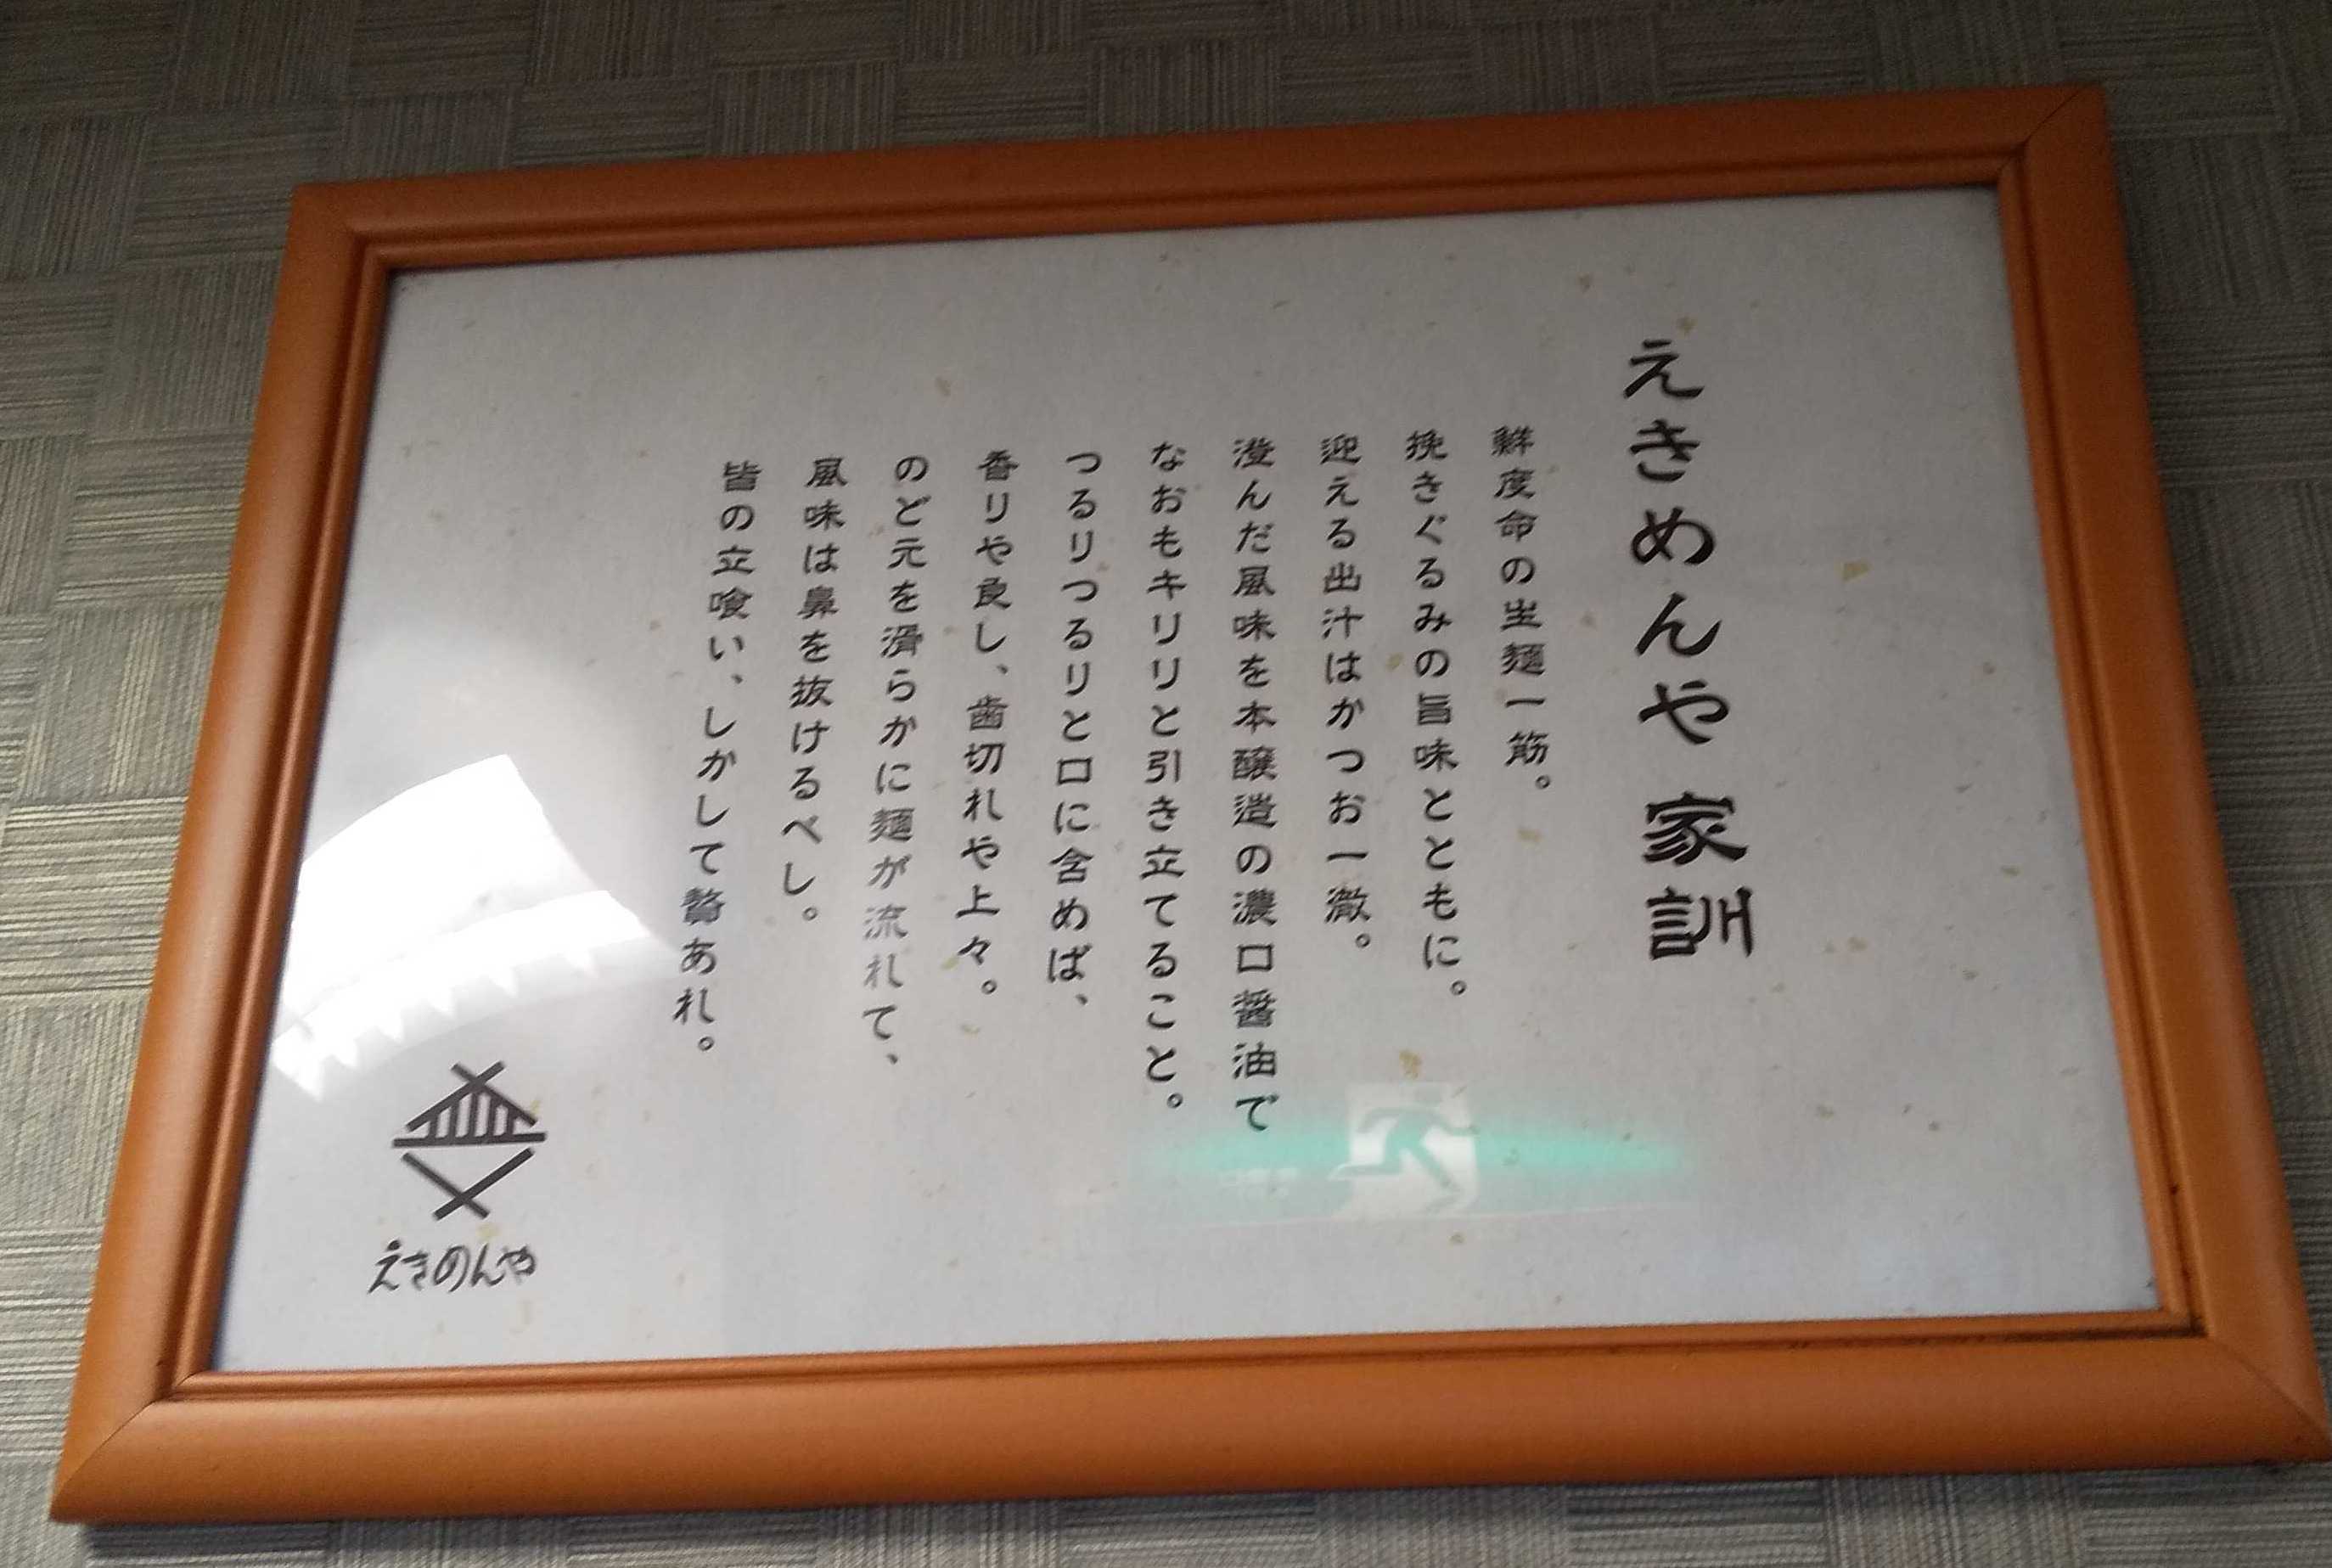 えきめんや 家訓
鮮度命の生麺一筋。
挽きぐるみの旨味とともに。
迎える出汁はかつお一徹。
澄んだ風味を本醸造の濃口醤油で
なおもキリリと引き立てること。
つるりつるりと口に含めば、
香りや良し、歯切れや上々。
のど元を滑らかに麺が流れて、
風味は鼻を抜けるべし。
皆の立喰い、しかして贅あれ。
えきめんや